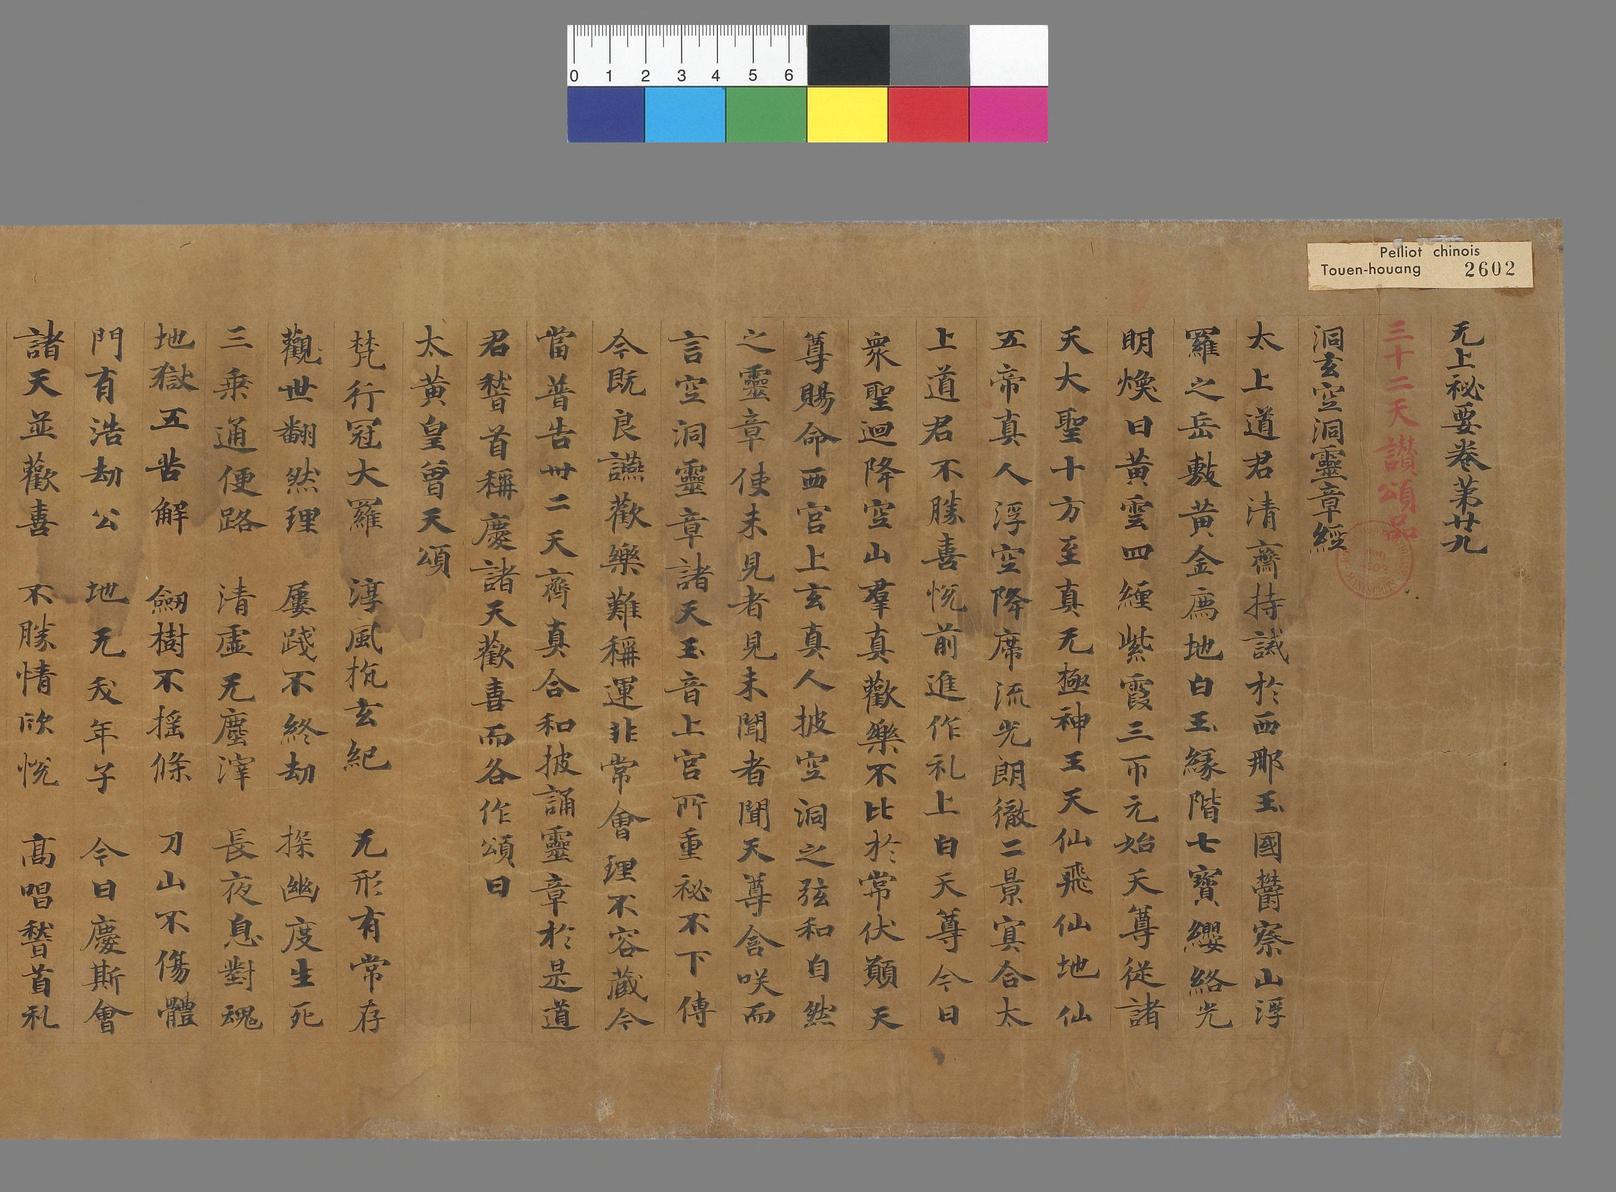 0 1 2 3 4 5 6
Pelliot chinois
Touen-houang 2602
无上祕要卷第廿九
三十二天讃頌品
洞玄空洞靈章經
太上道君清齋持誡於西那玉國欝察山浮
羅之岳敷黃金爲地白玉緣階七寶纓絡光
明煥日黃雲四纏紫霞三帀元始天尊從諸
天大聖十方至真无極神王天仙飛仙地仙
五帝真人浮空降席流光朗徹二景寘合太
上道君不勝喜悅前進作礼上白天尊今日
衆聖迴降空山羣真歡樂不比於常伏願天
尊賜命西官上玄真人披空洞之弦和自然
之靈章使未見者見未聞者聞天尊含咲而
言空洞靈章諸天玉音上官所重祕不下傳
今既良讌歡樂難稱運非常會理不容藏今
當普告卅二天齊真合和披誦靈章於是道
君稽首稱慶諸天歡喜而各作頌曰
太黃皇曾天頌
梵行冠大羅 淳風抗玄紀 无形有常存
觀世翻然理 屢踐不終劫 探幽度生死
三乘通便路 清虛无塵滓 長夜息對魂
地獄五苦解 劒樹不摇條 刀山不傷體
門有浩劫公 地无戎年子 今日慶斯會
諸天並歡喜 不勝情欣悅 高唱稽首礼